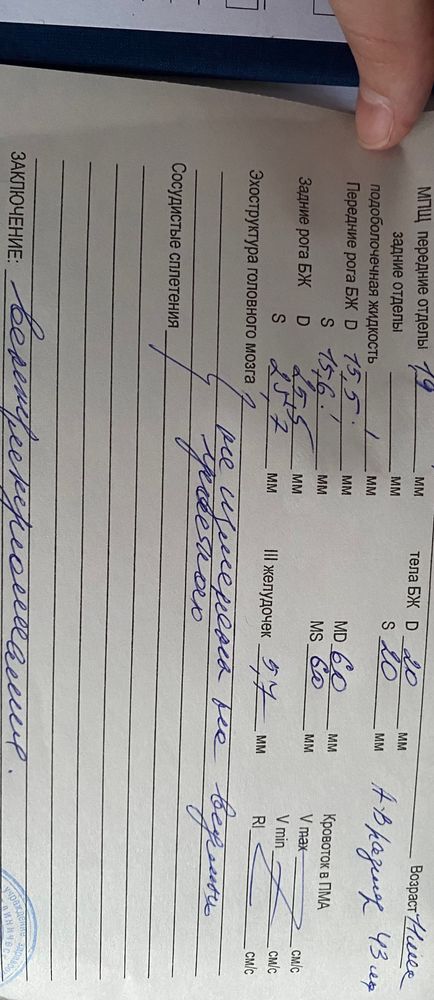 МПЩ передние отделы 1,9 мм
задние отделы мм
подоболочечная жидкость мм
Передние рога БЖ D 15,5 мм
S 15,6 мм
Задние рога БЖ D 25,5 мм
S 25,7 мм
Возраст
тела БЖ D 20 мм
S 20 мм
43
MD 60 мм
MS 60 мм
III желудочек 5,7 мм
Кровоток в ПМА
V max см/с
V min см/с
RI см/с
Эхоструктура головного мозга не изменена на
Сосудистые сплетения
ЗАКЛЮЧЕНИЕ: Вентрикуломегалия.